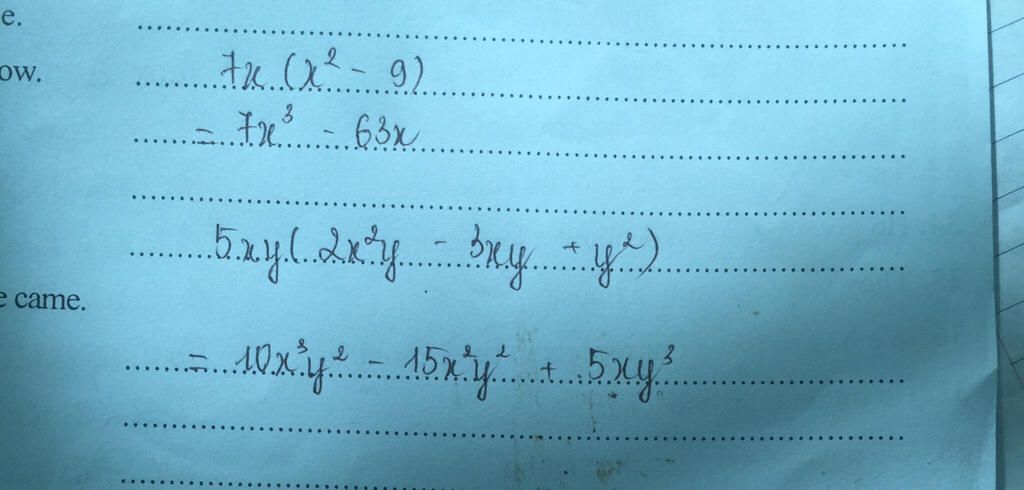 e.
ow.
7x (x² - 9)
= 7x³ - 63x
5xy( 2x²y - 3xy + y²)
e came.
= 10x³y² - 15x²y² + 5xy³